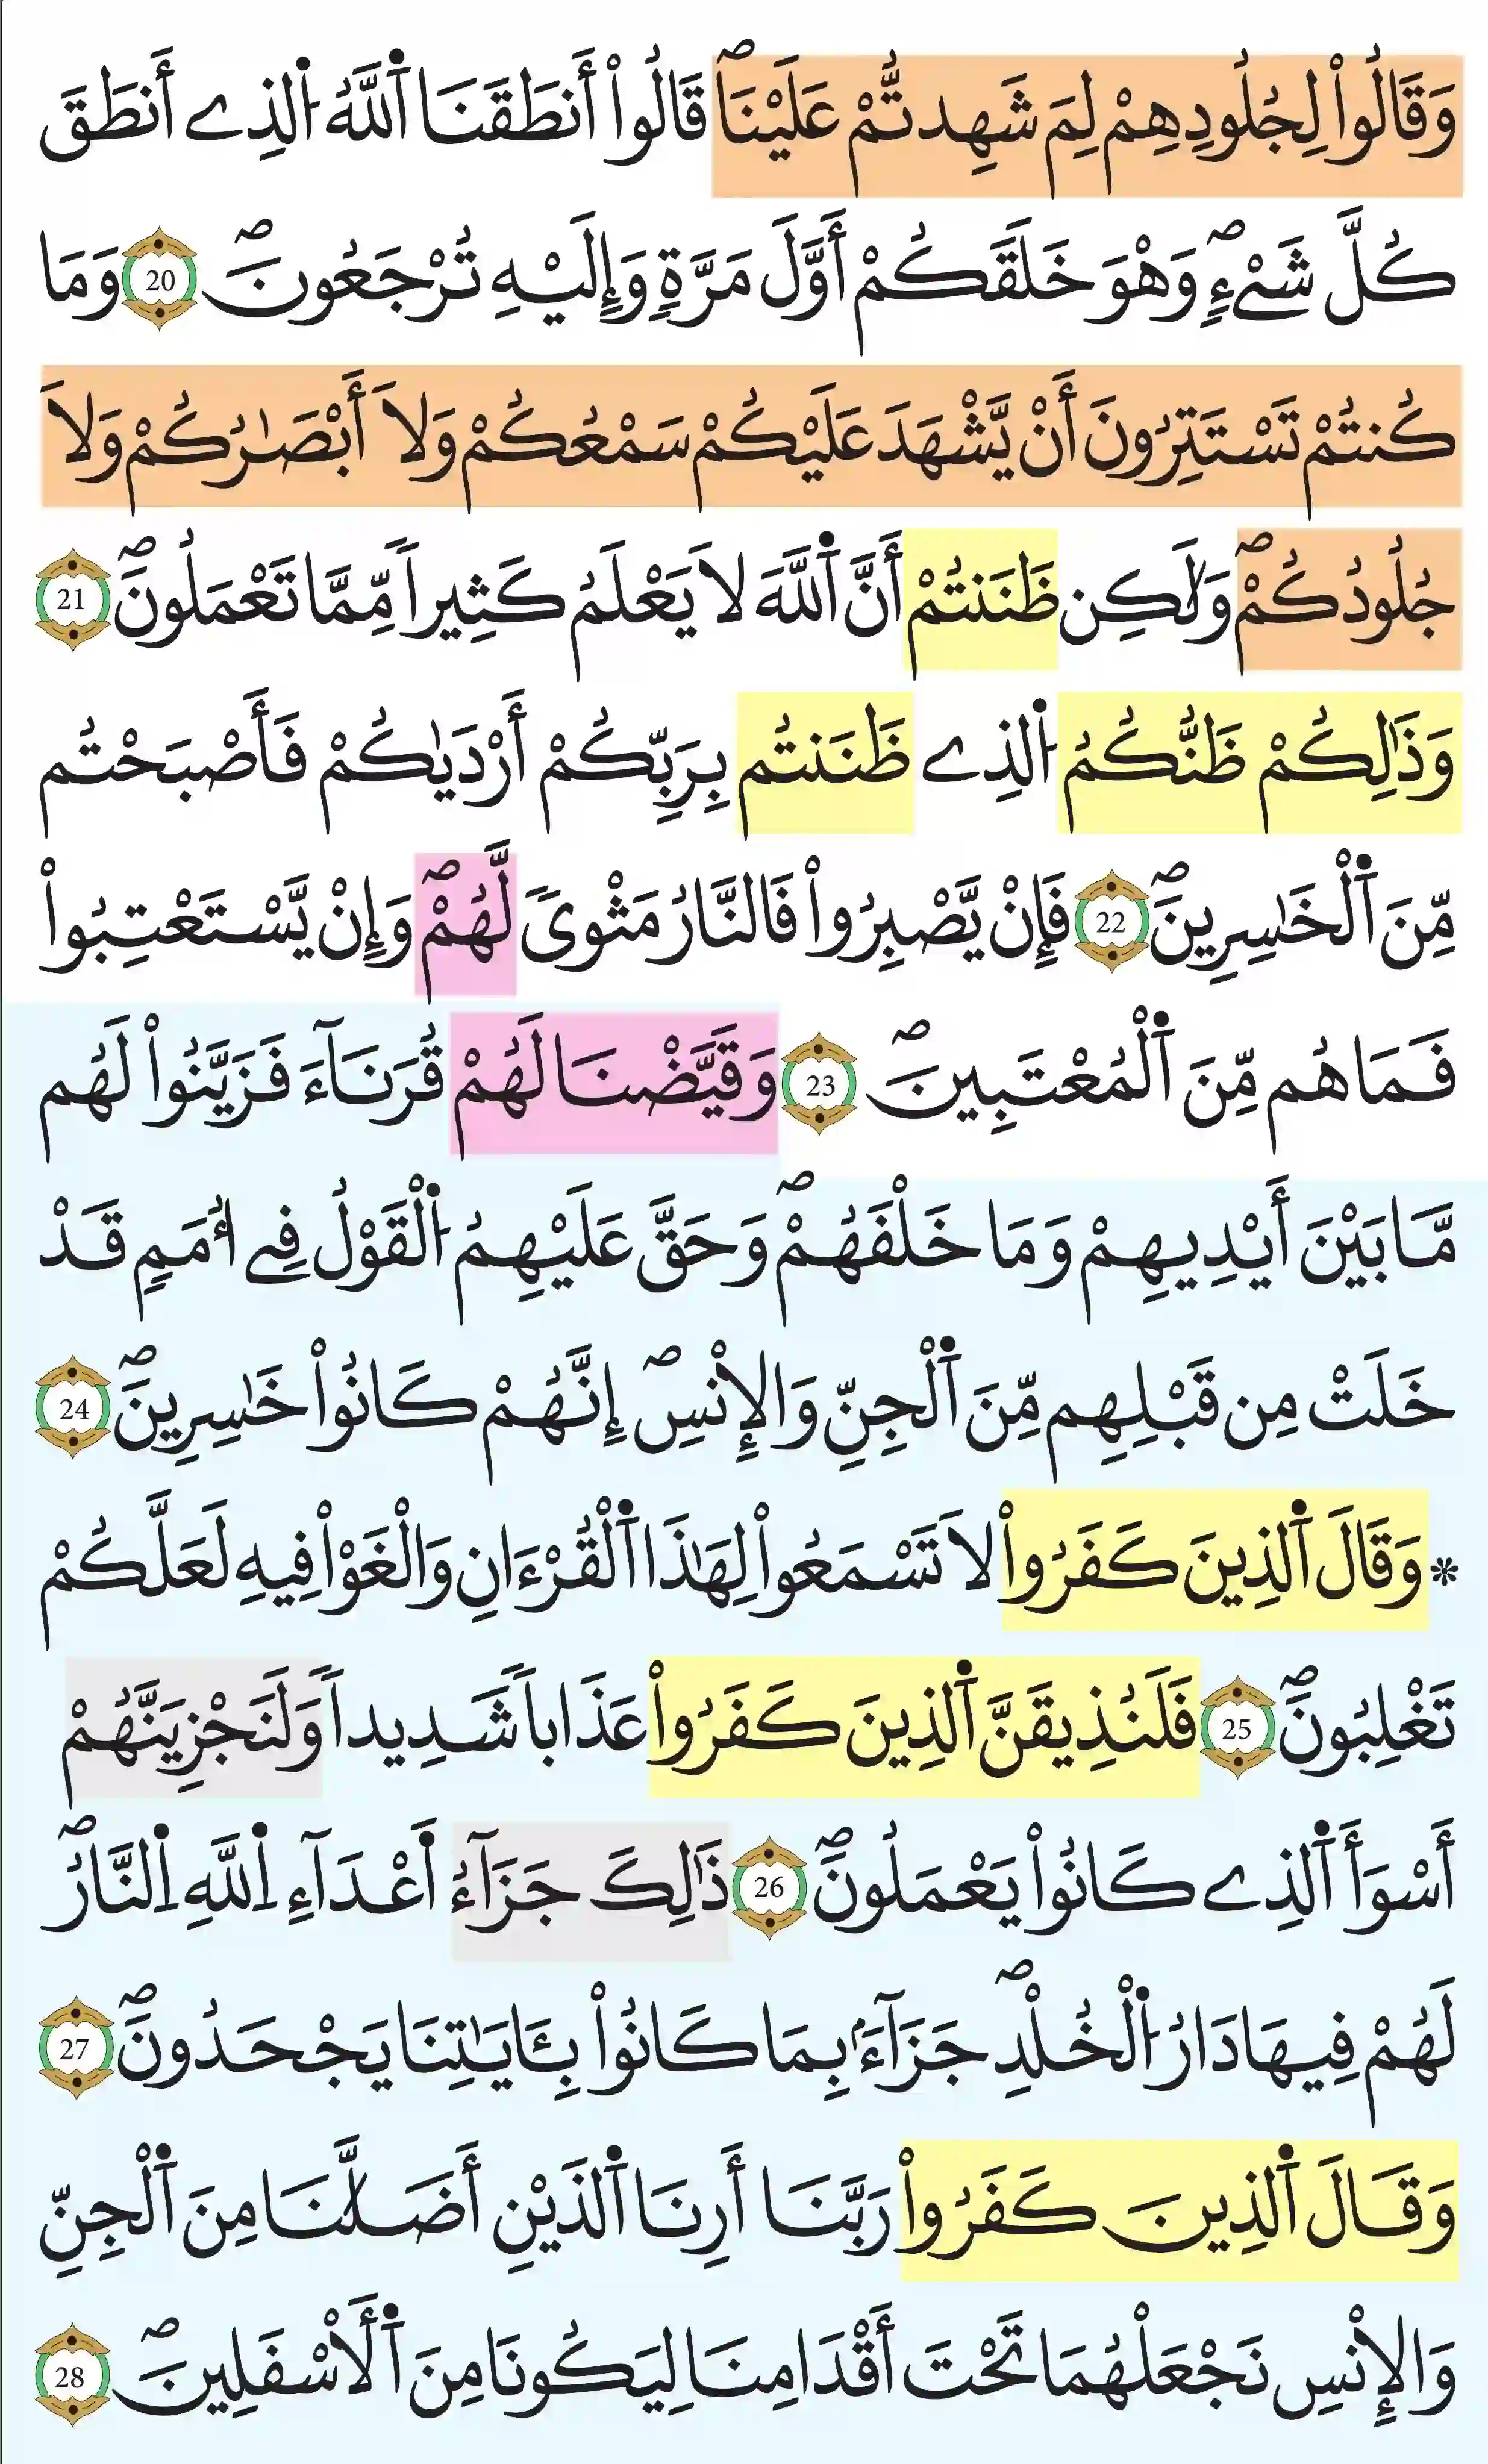 وَقَالُواْ لِجُلُودِهِمْ لِمَ شَهِدتُّمْ عَلَيْنَاۖ قَالُواْ أَنطَقَنَا اَ۬للَّهُ اُ۬لذِے أَنطَقَ
كُلَّ شَےْءٖۖ وَهْوَ خَلَقَكُمْ أَوَّلَ مَرَّةٖ وَإِلَيْهِ تُرْجَعُونَۖ 20 وَمَا
كُنتُمْ تَسْتَتِرُونَ أَنْ يَّشْهَدَ عَلَيْكُمْ سَمْعُكُمْ وَلَا أَبْصَٰرُكُمْ وَلَا
جُلُودُكُمْۖ وَلَٰكِن ظَنَنتُمْ أَنَّ اَ۬للَّهَ لَا يَعْلَمُ كَثِيراٗ مِّمَّا تَعْمَلُونَۖ 21
وَذَٰلِكُمْ ظَنُّكُمُ اُ۬لذِے ظَنَنتُم بِرَبِّكُمْ أَرْدَيٰكُمْ فَأَصْبَحْتُم
مِّنَ اَ۬لْخَٰسِرِينَۖ 22 فَإِنْ يَّصْبِرُواْ فَالنَّارُ مَثْويٗ لَّهُمْۖ وَإِنْ يَّسْتَعْتِبُواْ
فَمَا هُم مِّنَ اَ۬لْمُعْتَبِينَۖ 23 وَقَيَّضْنَا لَهُمْ قُرَنَآءَ فَزَيَّنُواْ لَهُم
مَّا بَيْنَ أَيْدِيهِمْ وَمَا خَلْفَهُمْۖ وَحَقَّ عَلَيْهِمُ اُ۬لْقَوْلُ فِے أُمَمٖ قَدْ
خَلَتْ مِن قَبْلِهِم مِّنَ اَ۬لْجِنِّ وَالْإِنسِۖ إِنَّهُمْ كَانُواْ خَٰسِرِينَۖ 24
* وَقَالَ اَ۬لذِينَ كَفَرُواْ لَا تَسْمَعُواْ لِهَٰذَا اَ۬لْقُرْءَانِ وَالْغَوْاْ فِيهِ لَعَلَّكُمْ
تَغْلِبُونَۖ 25 فَلَنُذِيقَنَّ اَ۬لذِينَ كَفَرُواْ عَذَاباٗ شَدِيداٗ وَلَنَجْزِيَنَّهُمْ
أَسْوَأَ اَ۬لذِے كَانُواْ يَعْمَلُونَۖ 26 ذَٰلِكَ جَزَآءُ اَعْدَآءِ اِ۬للَّهِ اِ۬لنَّارُۖ
لَهُمْ فِيهَا دَارُ اُ۬لْخُلْدِۖ جَزَآءَۢ بِمَا كَانُواْ بِـَٔايَٰتِنَا يَجْحَدُونَۖ 27
وَقَالَ اَ۬لذِينَ كَفَرُواْ رَبَّنَا أَرِنَا اَ۬لذَيْنِ أَضَلَّٰنَا مِنَ اَ۬لْجِنِّ
وَالْإِنسِ نَجْعَلْهُمَا تَحْتَ أَقْدَامِنَا لِيَكُونَا مِنَ اَ۬لْأَسْفَلِينَۖ 28